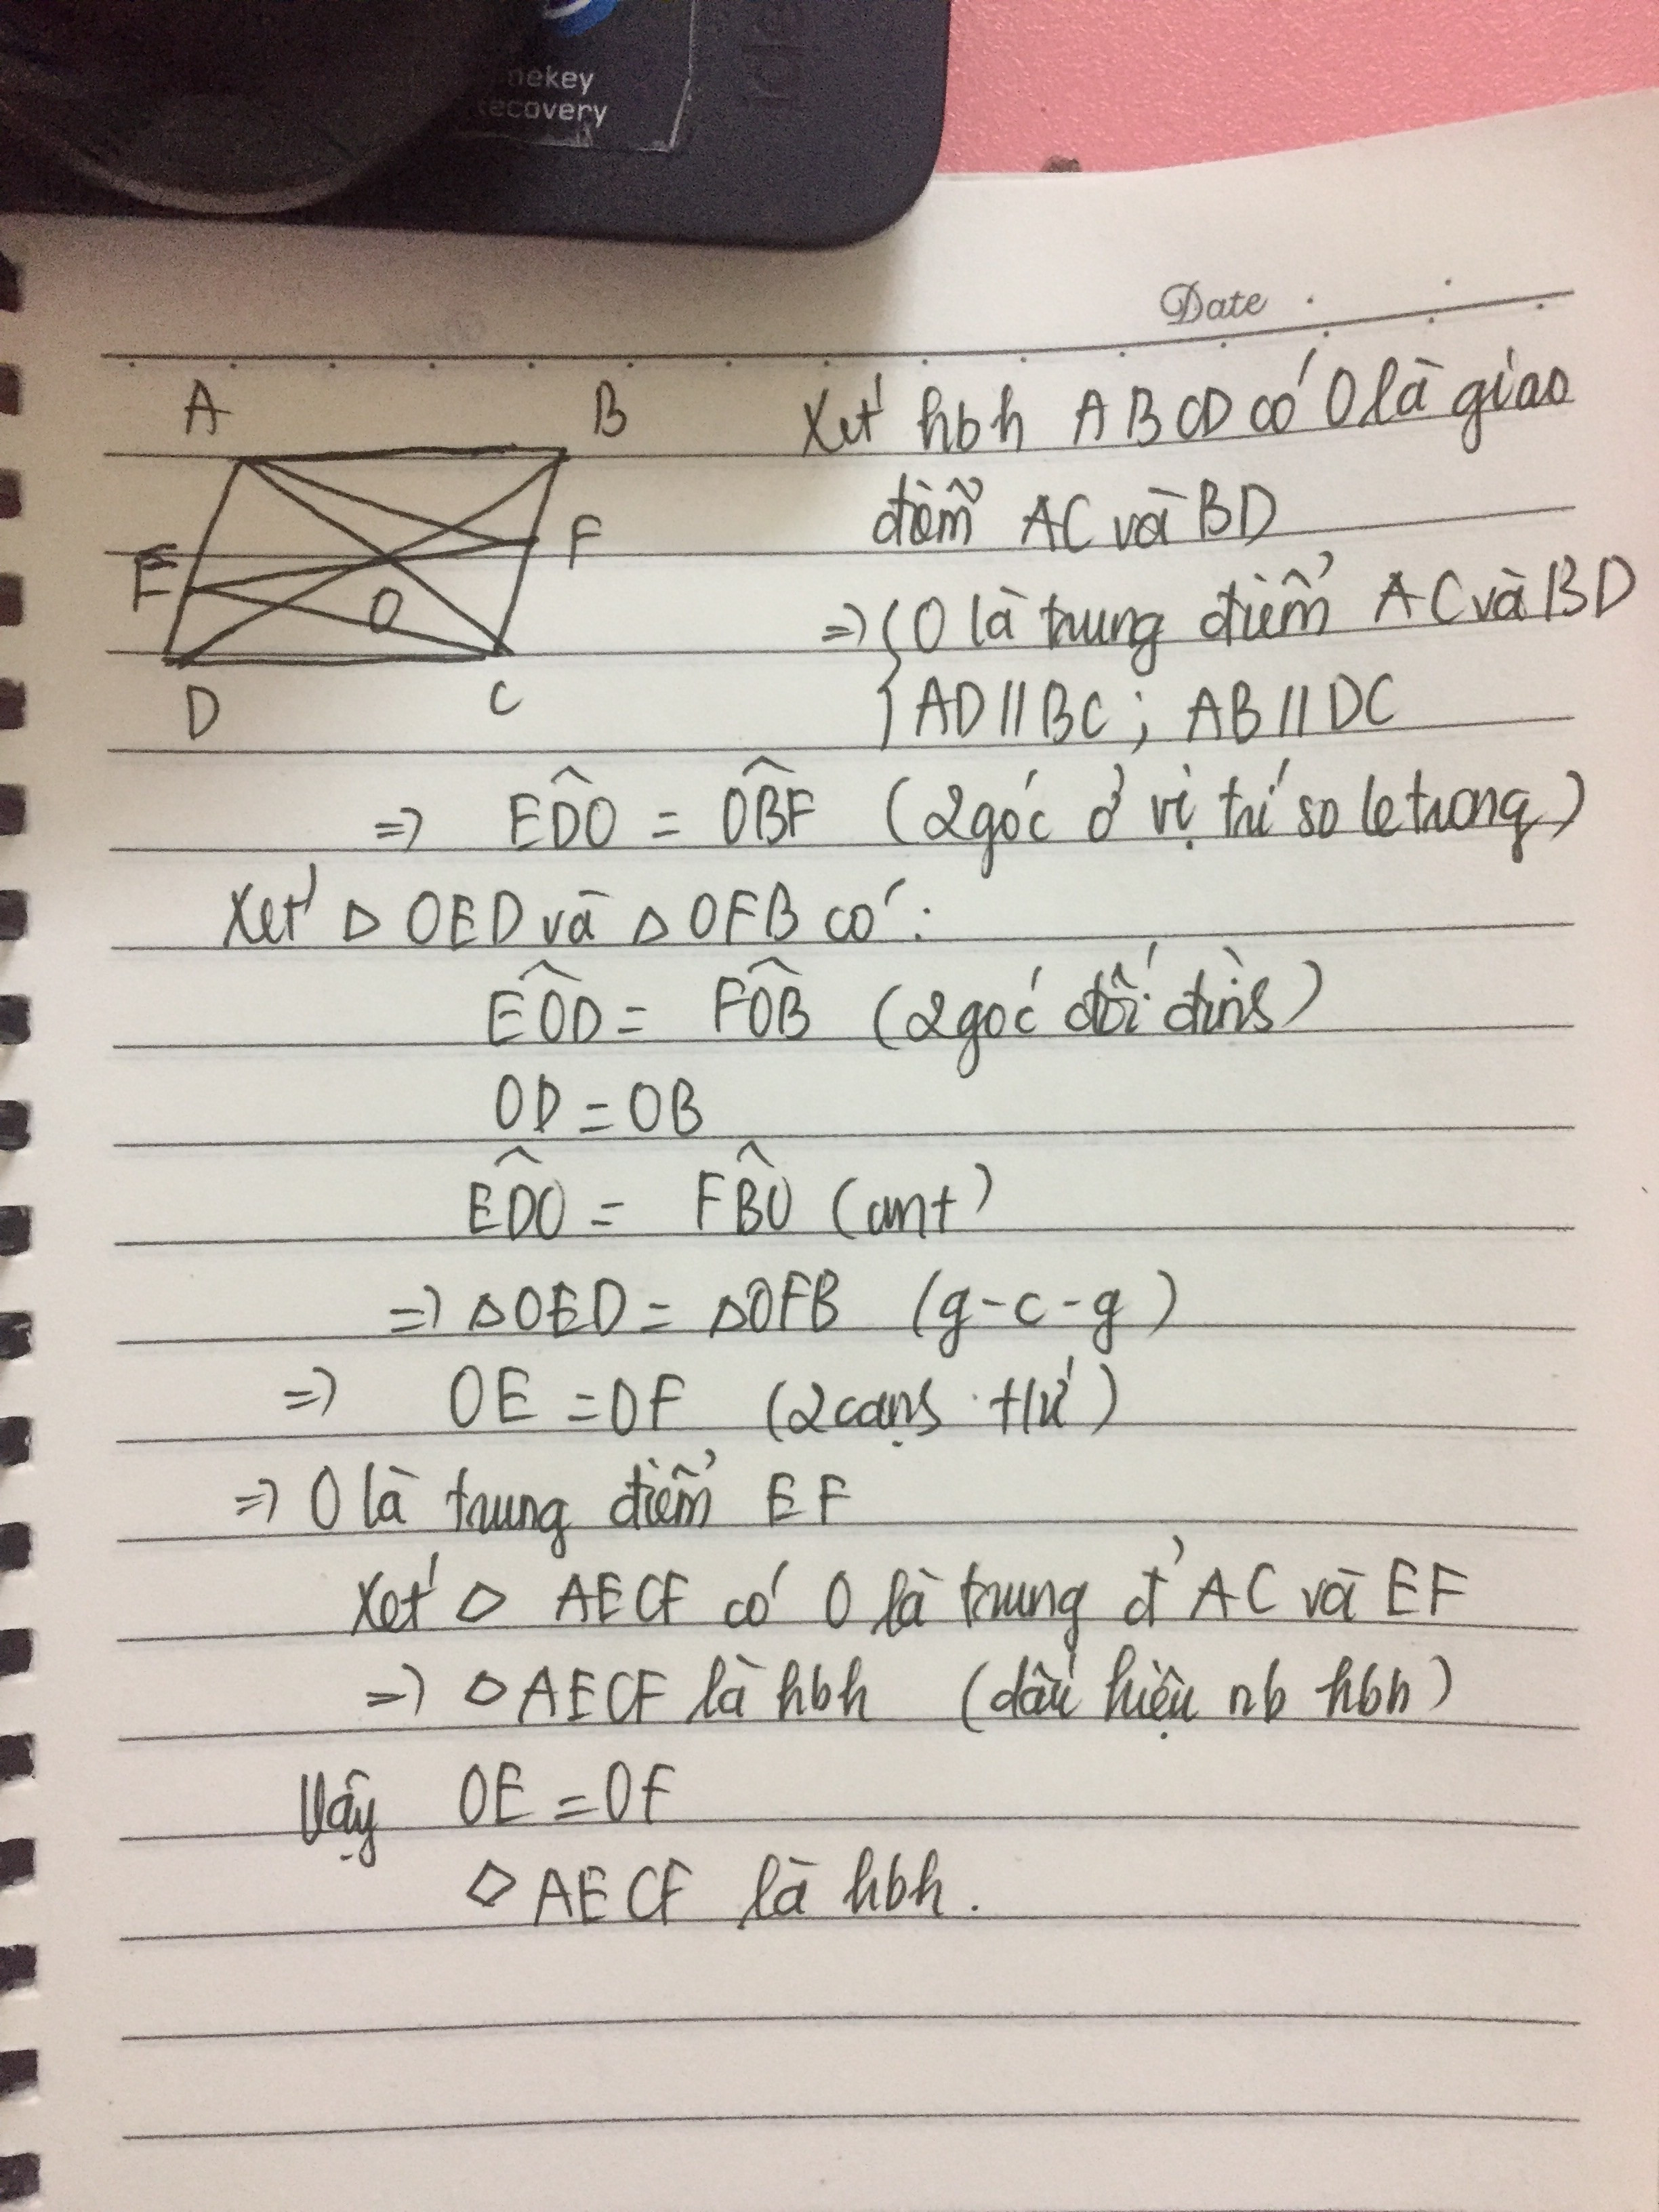 nekey
recovery
Date
A
B
F
E
O
D
C
Xét hbh ABCD có O là giao
điểm AC và BD
=> { O là trung điểm AC và BD
AD // BC ; AB // DC
=> EDO^ = OBF^ (2 góc ở vị trí so le trong)
Xét Δ OED và Δ OFB có :
EOD^ = FOB^ (2 góc đối đỉnh)
OD = OB
EDO^ = FBO^ (cmt)
=> ΔOED = ΔOFB (g-c-g)
=> OE = OF (2 cạnh t/ứ)
=> O là trung điểm EF
Xét ◇ AECF có O là trung đ' AC và EF
=> ◇ AECF là hbh (dấu hiệu nb hbh)
Vậy OE = OF
◇ AECF là hbh.